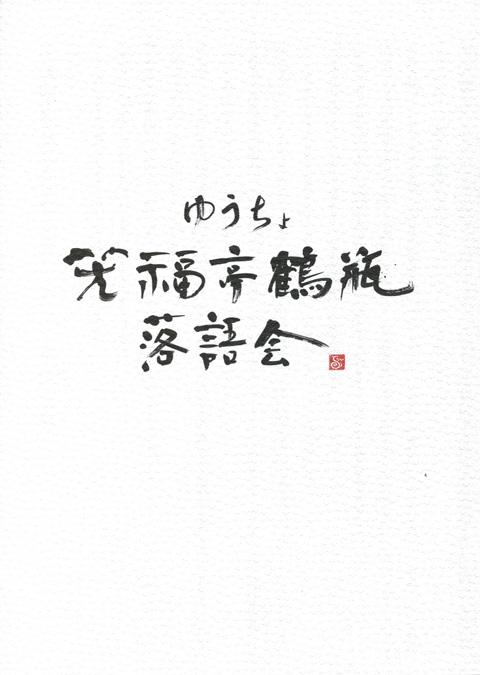 ゆうちょ
笑福亭鶴瓶
落語会